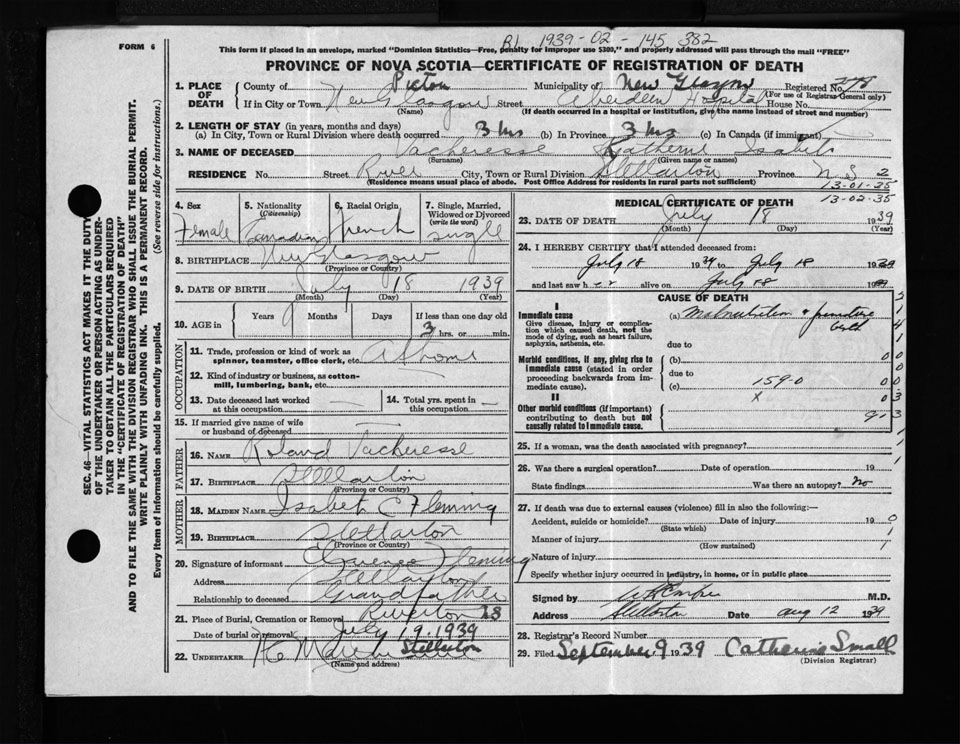 FORM 6
R1 1939-02-145 382
This form if placed in an envelope, marked "Dominion Statistics—Free, penalty for improper use $300," and properly addressed will pass through the mail "FREE"
PROVINCE OF NOVA SCOTIA—CERTIFICATE OF REGISTRATION OF DEATH
1. PLACE OF DEATH County of Pictou Municipality of New Glasgow Registered No.
(For use of Registrar-General only)
If in City or Town New Glasgow Street Aberdeen Hospital House No.
(Name) (If death occurred in a hospital or institution, give the name instead of street and number)
2. LENGTH OF STAY (in years, months and days)
(a) In City, Town or Rural Division where death occurred 3 hrs (b) In Province 3 hrs (c) In Canada (if immigrant)
3. NAME OF DECEASED Vacheresse Katherine Isabel
(Surname) (Given name or names)
RESIDENCE No. Street River City, Town or Rural Division Stellarton Province N.S. 2
(Residence means usual place of abode. Post Office Address for residents in rural parts not sufficient)
13-01-35
13-02-35
4. Sex Female
5. Nationality (Citizenship) Canadian
6. Racial Origin French
7. Single, Married, Widowed or Divorced (write the word) Single
8. BIRTHPLACE New Glasgow
(Province or Country)
9. DATE OF BIRTH July 18 1939
(Month) (Day) (Year)
10. AGE in Years Months Days If less than one day old
3 hrs. or min.
OCCUPATION
11. Trade, profession or kind of work as spinner, teamster, office clerk, etc. At home
12. Kind of industry or business, as cotton-mill, lumbering, bank, etc.
13. Date deceased last worked at this occupation — 14. Total yrs. spent in this occupation —
15. If married give name of wife or husband of deceased
FATHER
16. NAME Roland Vacheresse
17. BIRTHPLACE Stellarton
(Province or Country)
MOTHER
18. MAIDEN NAME Isabel C Fleming
19. BIRTHPLACE Stellarton
(Province or Country)
20. Signature of informant Fleming
Address Stellarton
Relationship to deceased Grandfather
21. Place of Burial, Cremation or Removal Riverton
Date of burial or removal July 19 1939
22. UNDERTAKER Stellarton
(Name and address)
MEDICAL CERTIFICATE OF DEATH
23. DATE OF DEATH July 18 1939
(Month) (Day) (Year)
24. I HEREBY CERTIFY that I attended deceased from:
July 18 1939 to July 18 1939
and last saw her alive on July 18 19
CAUSE OF DEATH
I
Immediate cause (a) Malnutrition + premature birth
Give disease, injury or complication which caused death, not the mode of dying, such as heart failure, asphyxia, asthenia, etc.
due to
Morbid conditions, if any, giving rise to immediate cause (stated in order proceeding backwards from immediate cause).
(b)
due to
(c) 159-0
II
x
Other morbid conditions (if important) contributing to death but not causally related to immediate cause.
25. If a woman, was the death associated with pregnancy?
26. Was there a surgical operation? Date of operation 19
State findings Was there an autopsy? no
27. If death was due to external causes (violence) fill in also the following:—
Accident, suicide or homicide? Date of injury 19
(State which)
Manner of injury
(How sustained)
Nature of injury
Specify whether injury occurred in industry, in home, or in public place
Signed by M.D.
Address Stellarton Date Aug 12 1939
28. Registrar's Record Number
29. Filed September 9 1939 Catherine Small
(Division Registrar)
SEC. 46—VITAL STATISTICS ACT MAKES IT THE DUTY
OF THE UNDERTAKER OR PERSON ACTING AS UNDER-
TAKER TO OBTAIN ALL THE PARTICULARS REQUIRED
IN THE "CERTIFICATE OF REGISTRATION OF DEATH"
AND TO FILE THE SAME WITH THE DIVISION REGISTRAR WHO SHALL ISSUE THE BURIAL PERMIT.
WRITE PLAINLY WITH UNFADING INK. THIS IS A PERMANENT RECORD.
Every item of information should be carefully supplied. (See reverse side for instructions.)